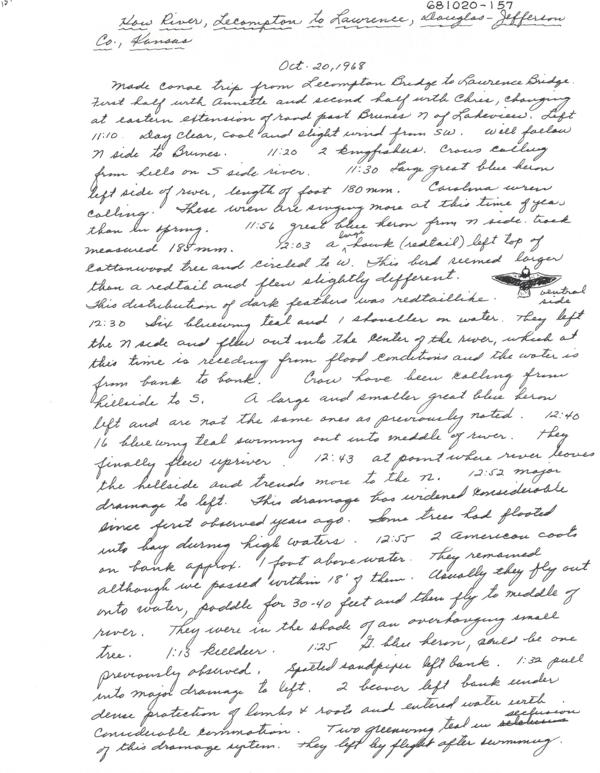 681020-157
Kaw River, Lecompton to Lawrence, Douglas-Jefferson
Co., Kansas
Oct. 20, 1968
Made canoe trip from Lecompton Bridge to Lawrence Bridge.
First half with Annette and second half with Chris, changing
at eastern extension of road past Brunes N of Lakeview. Left
11:10. Day clear, cool and slight wind from SW. Will follow
N side to Brunes. 11:20 2 kingfishers. Crows calling
from hills on S side river. 11:30 Large great blue heron
left side of river, length of foot 180 mm. Carolina wren
calling. These wren are singing more at this time of year
than in spring. 11:56 great blue heron from N side. track
measured 185 mm. 12:03 a large hawk (redtail) left top of
cottonwood tree and circled to W. This bird seemed larger
than a redtail and flew slightly different.
This distribution of dark feathers was redtaillike. ventral
side
12:30 Six bluewing teal and 1 shoveller on water. They left
the N side and flew out into the center of the river, which at
this time is receding from flood conditions and the water is
from bank to bank. Crow have been calling from
hillside to S. A large and smaller great blue heron
left and are not the same ones as previously noted. 12:40
16 bluewing teal swimming out into meddle of river. They
finally flew upriver. 12:43 at point where river leaves
the hillside and trends more to the N. 12:52 major
drainage to left. This drainage has widened considerable
since first observed years ago. Some trees had floated
into bay during high waters. 12:55 2 American coots
on bank approx. 1 foot above water. They remained
although we passed within 18' of them. Usually they fly out
onto water, paddle for 30-40 feet and then fly to middle of
river. They were in the shade of an overhanging small
tree. 1:13 killdeer. 1:25 G. blue heron, could be one
previously observed. Spotted sandpiper left bank. 1:32 pull
into major drainage to left. 2 beaver left bank under
dense protection of limbs & roots and entered water with
considerable commotion. Two greenwing teal in seclusion
of this drainage system. They left by flight after swimming.